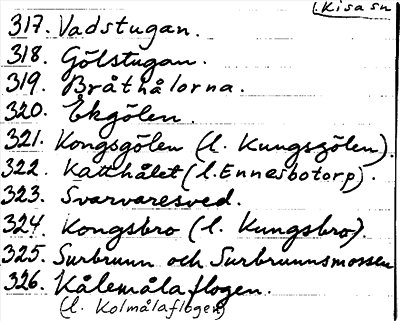 Kisa sn
317. Vadstugan.
318. Gölstugan.
319. Bråthålorna.
320. Ekgölen.
321. Kongsgölen (l. Kungsgölen).
322. Katthålet (l. Ennesbotorp).
323. Svarvaresved.
324. Kongsbro (l. Kungsbro).
325. Surbrunn och Surbrunnsmossen
326. Kålemåla flogen.
(l. Kolmålaflogen)